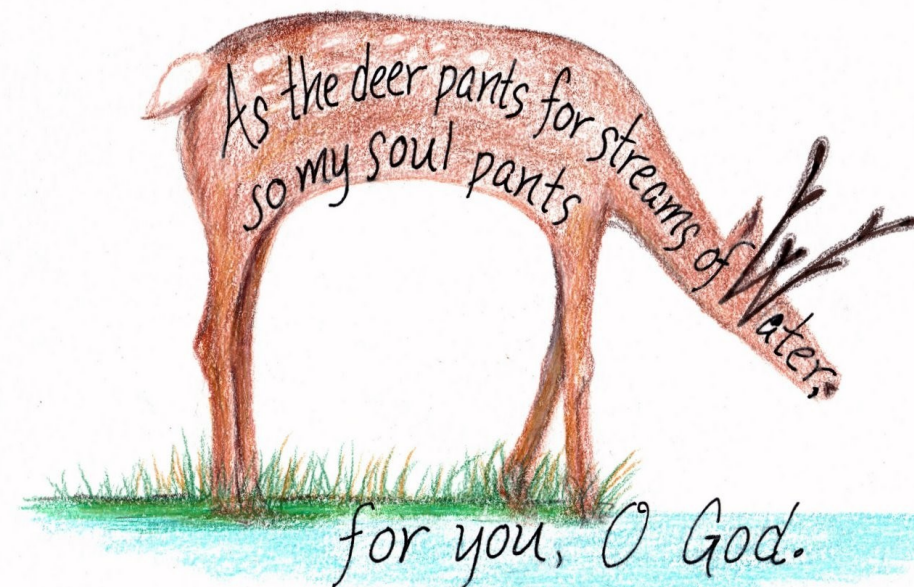 As the deer pants for streams of Water,
so my soul pants
for you, O God.